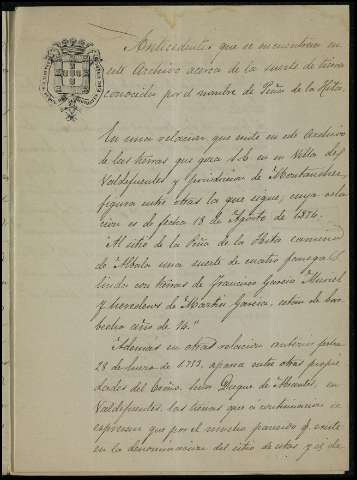 Antecedentes que se encuentran en
este Archivo acerca de la suerte de tierra
conocida por el nombre de Peña de la Hita.
En una relacion que existe en este Archivo
de las tierras que goza S. E. en su Villa de
Valdefuentes y jurisdiccion de Montanchez,
figura entre otras la que sigue, cuya rela-
cion es de fecha 18 de Agosto de 1874.
"Al sitio de la Peña de la Hita camino
de Albalá una suerte de cuatro fanegas
linda con tierras de Francisco Garcia Muriel
y herederos de Martin Garcia, están de bar-
becho año de 74."
Además en otra relacion anterior fecha
28 de Enero de 1753, aparece entre otras propie-
dades del Excmo. Señor Duque de Abrantes, en
Valdefuentes, las tierras que á continuacion se
expresan que por el mucho parecido q. existe
en la denominacion del sitio de estas y el de